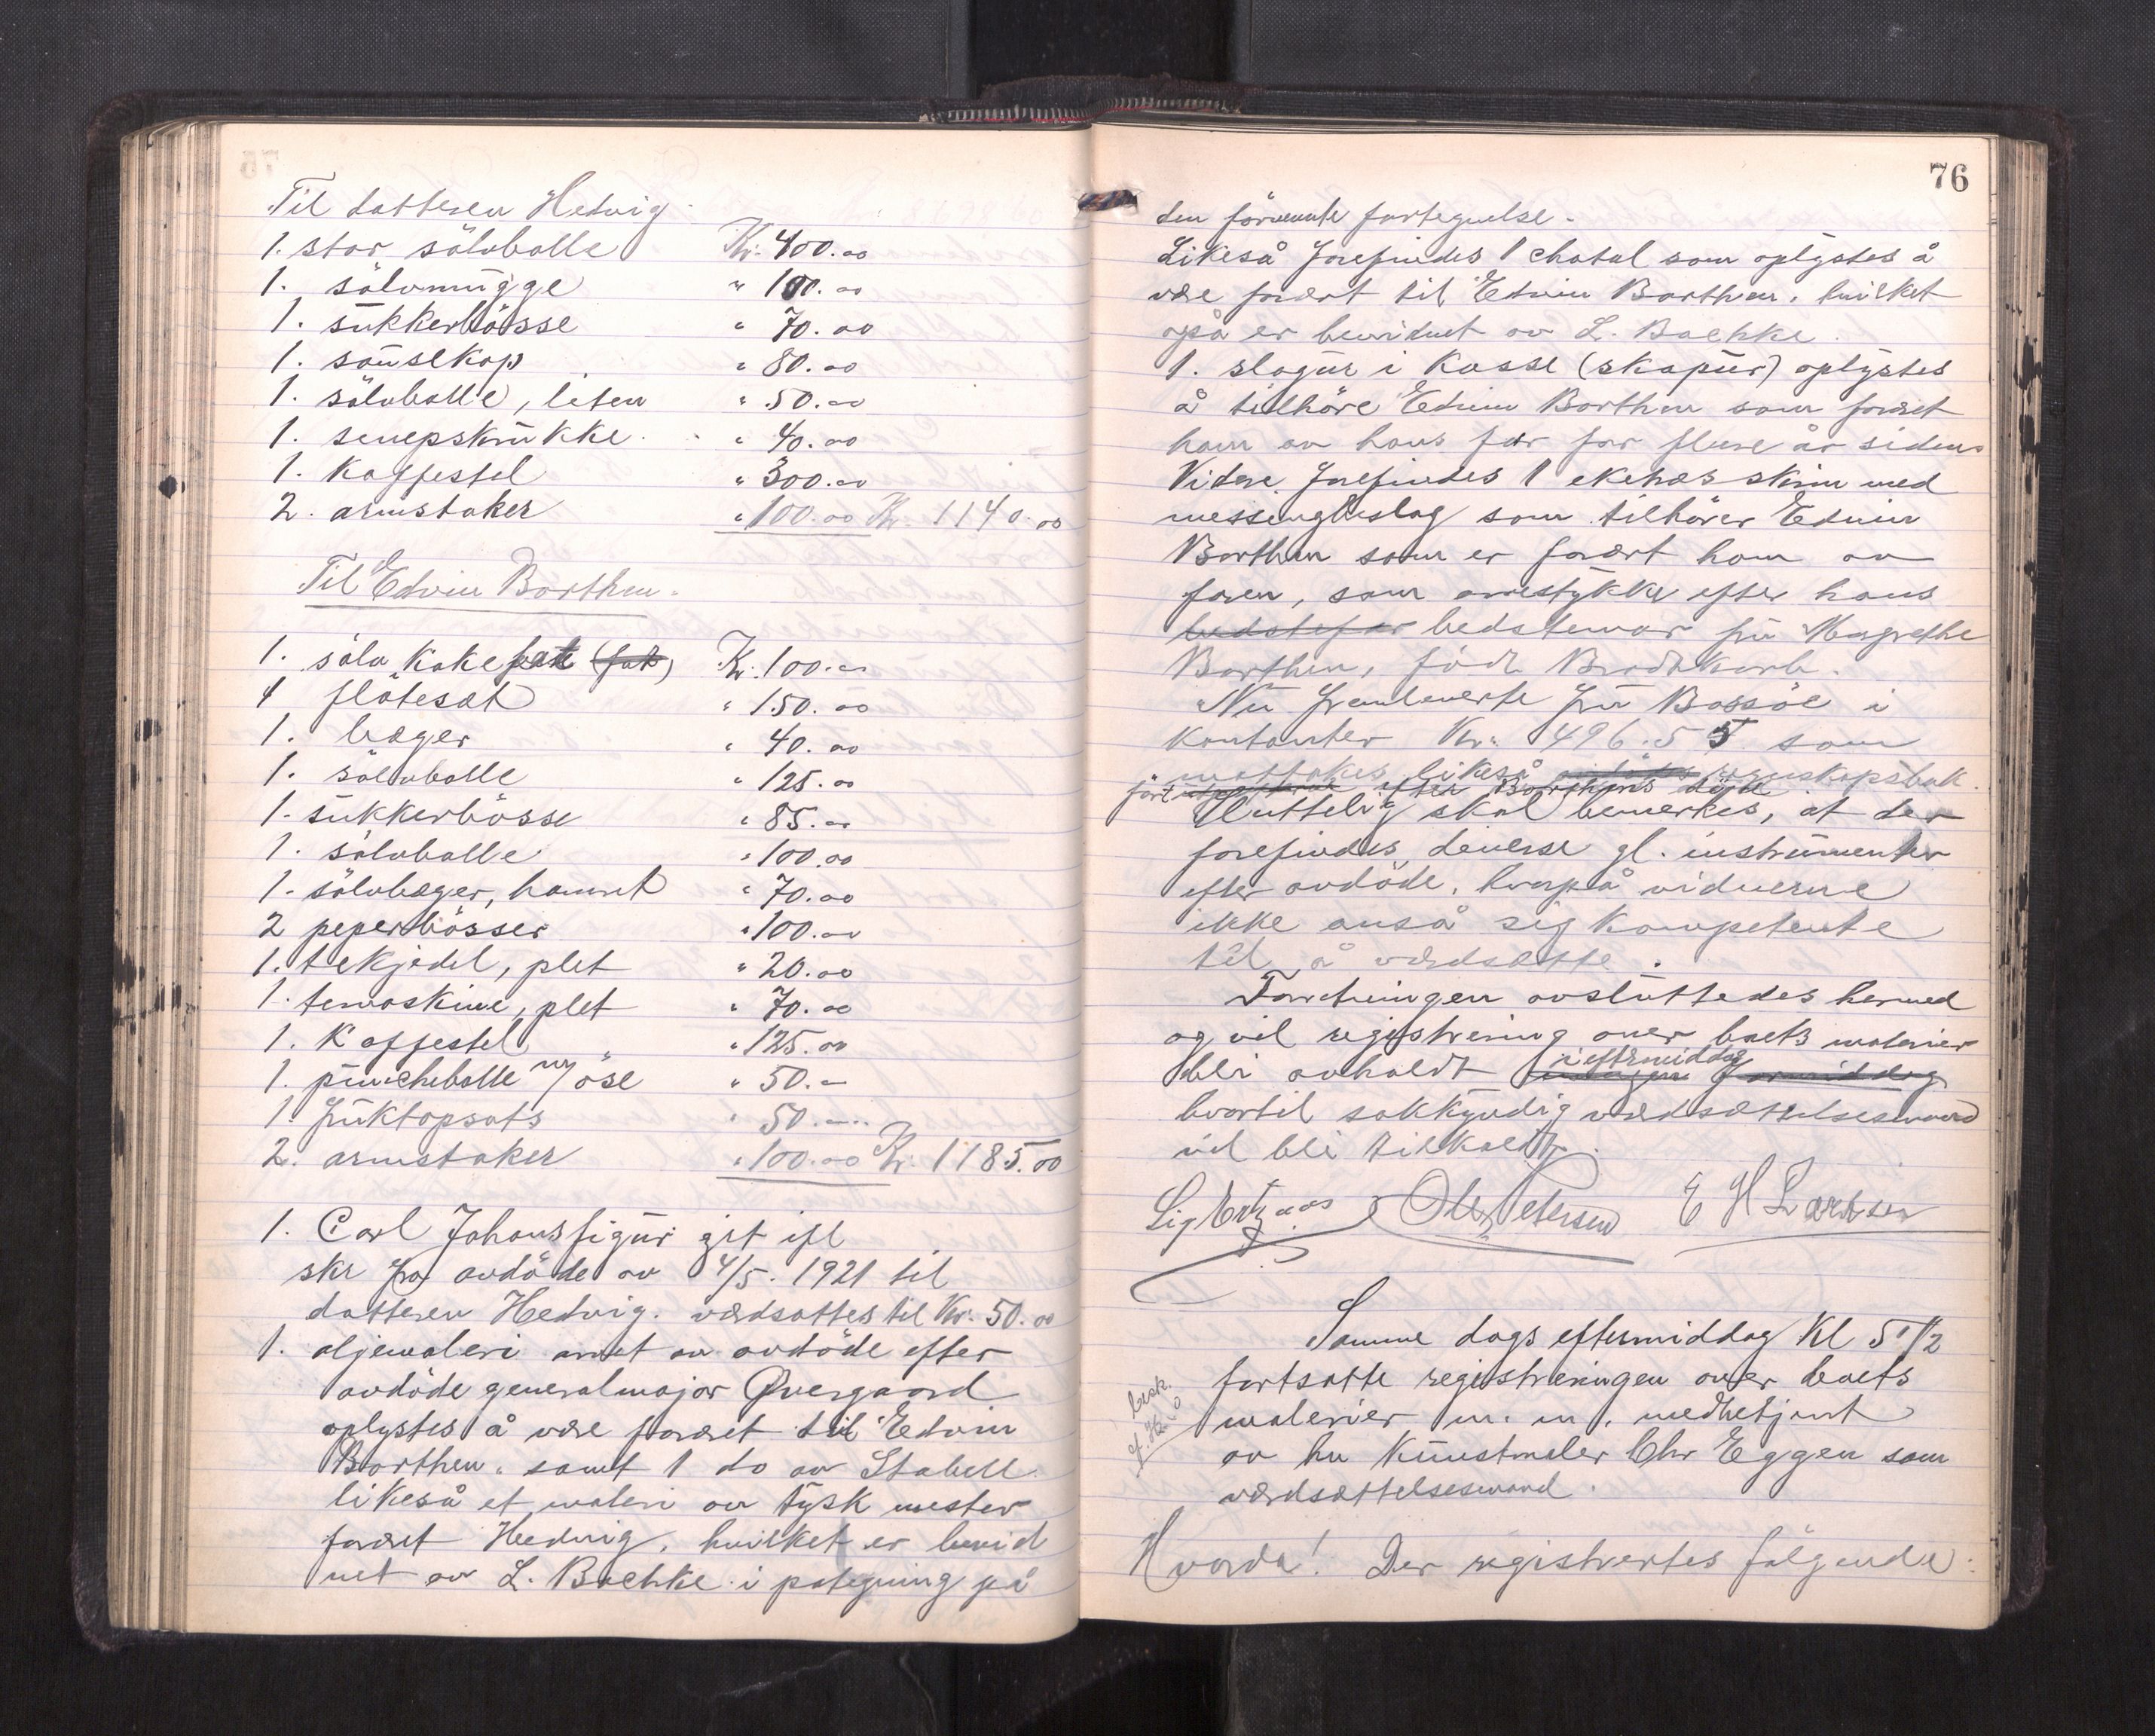 Til datteren Hedvig
1. stor sölvbolle Kr. 400.00
1. sölvmugge " 100.00
1. sukkerbösse " 70.00
1. sauselkop " 80.00
1. sölvbolle, liten " 50.00
1. senepskrukke " 40.00
1. Kaffestel " 300.00
2. armstaker " 100.00 Kr. 1140.00
Til Edvin Barthen.
1. sölv kakefat (fat) Kr. 100.00
1 flötesæt " 150.00
1. bæger " 40.00
1. sölvbolle " 125.00
1. sukkerbösse " 85.00
1. sölvbolle " 100.00
1. sölvbæger, hamret " 70.00
2 peperbösser " 100.00
1. tekjedel, plet " 20.00
1. temaskine, plet " 70.00
1. Kaffestel " 125.00
1. punchebolle m/ öse " 50.—
1. fruktopsats " 50.—
2. armstaker " 100.00 Kr. 1185.00
1. Carl Johansfigur git ifl
skr fra avdöde av 4/5. 1921 til
datteren Hedvig. værdsattes til Kr. 50.00
1. oljemaleri arvet av avdöde efter
avdöde generalmajor Øvergaard
oplystes å være foræret til Edvin
Barthen. samt 1 do av Stabell
likeså et maleri av tysk mester
foræret Hedvig, hvilket er bevid
net av L. Bachke i påtegning på
76
den förnevnte fortegnelse.
Likeså forefindes 1 chatol som oplystes å
være foræret til Edvin Barthen, hvilket
også er bevidnet av L. Bachke.
1. slagur i Kasse (skapur) oplystes
å tilhöre Edvin Barthen som foræret
ham av hans far for flere år siden.
Videre forefindes 1 ekehæs skrin med
messingbeslag som tilhörer Edvin
Barthen som er foræret ham av
faren, som arvestykke efter hans
bedstefar bedstemor fru Margrethe
Barthen, födt Brodtkorb.
Nu fremleverte fru Bassöe i
Kontanter Kr. 496.55 som
mottokes, likeså regnskapsbok.
fört efter Barthens död
Sluttelig skal bemerkes, at der
forefindes diverse gl. instrumenter
efter avdöde, hvorpå vidnerne
ikke anså sig Kompetente
til å værdsætte.
Forretningen avsluttedes hermed
og vil registrering over boets malerier
bli avholdt i eftermiddag formiddag
hvortil sakkyndig værdsættelsesmand
vil bli tilkaldt.
Ole Petersen E H Larsen
Samme dags eftermiddag Kl 5 1/2
fortsatte registreringen over boets
malerier m. m. medbetjent
av hr Kunstmaler Chr Eggen som
værdsættelsesmand.
Hvorda! Der registrertes fölgende: